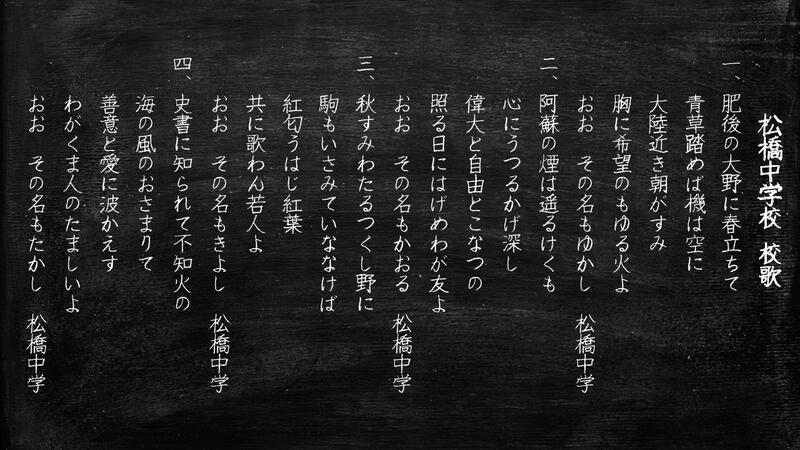 松橋中学校 校歌
一、肥後の大野に春立ちて
青草踏めば機は空に
大陸近き朝がすみ
胸に希望のもゆる火よ
おお その名もゆかし 松橋中学
二、阿蘇の煙は遥るけくも
心にうつるかげ深し
偉大と自由とこなつの
照る日にはげめわが友よ
おお その名もかおる 松橋中学
三、秋すみわたるつくし野に
駒もいさみていななけば
紅匂うはじ紅葉
共に歌わん若人よ
おお その名もきよし 松橋中学
四、史書に知られて不知火の
海の風のおさまりて
善意と愛に波かえす
わがくま人のたましいよ
おお その名もたかし 松橋中学